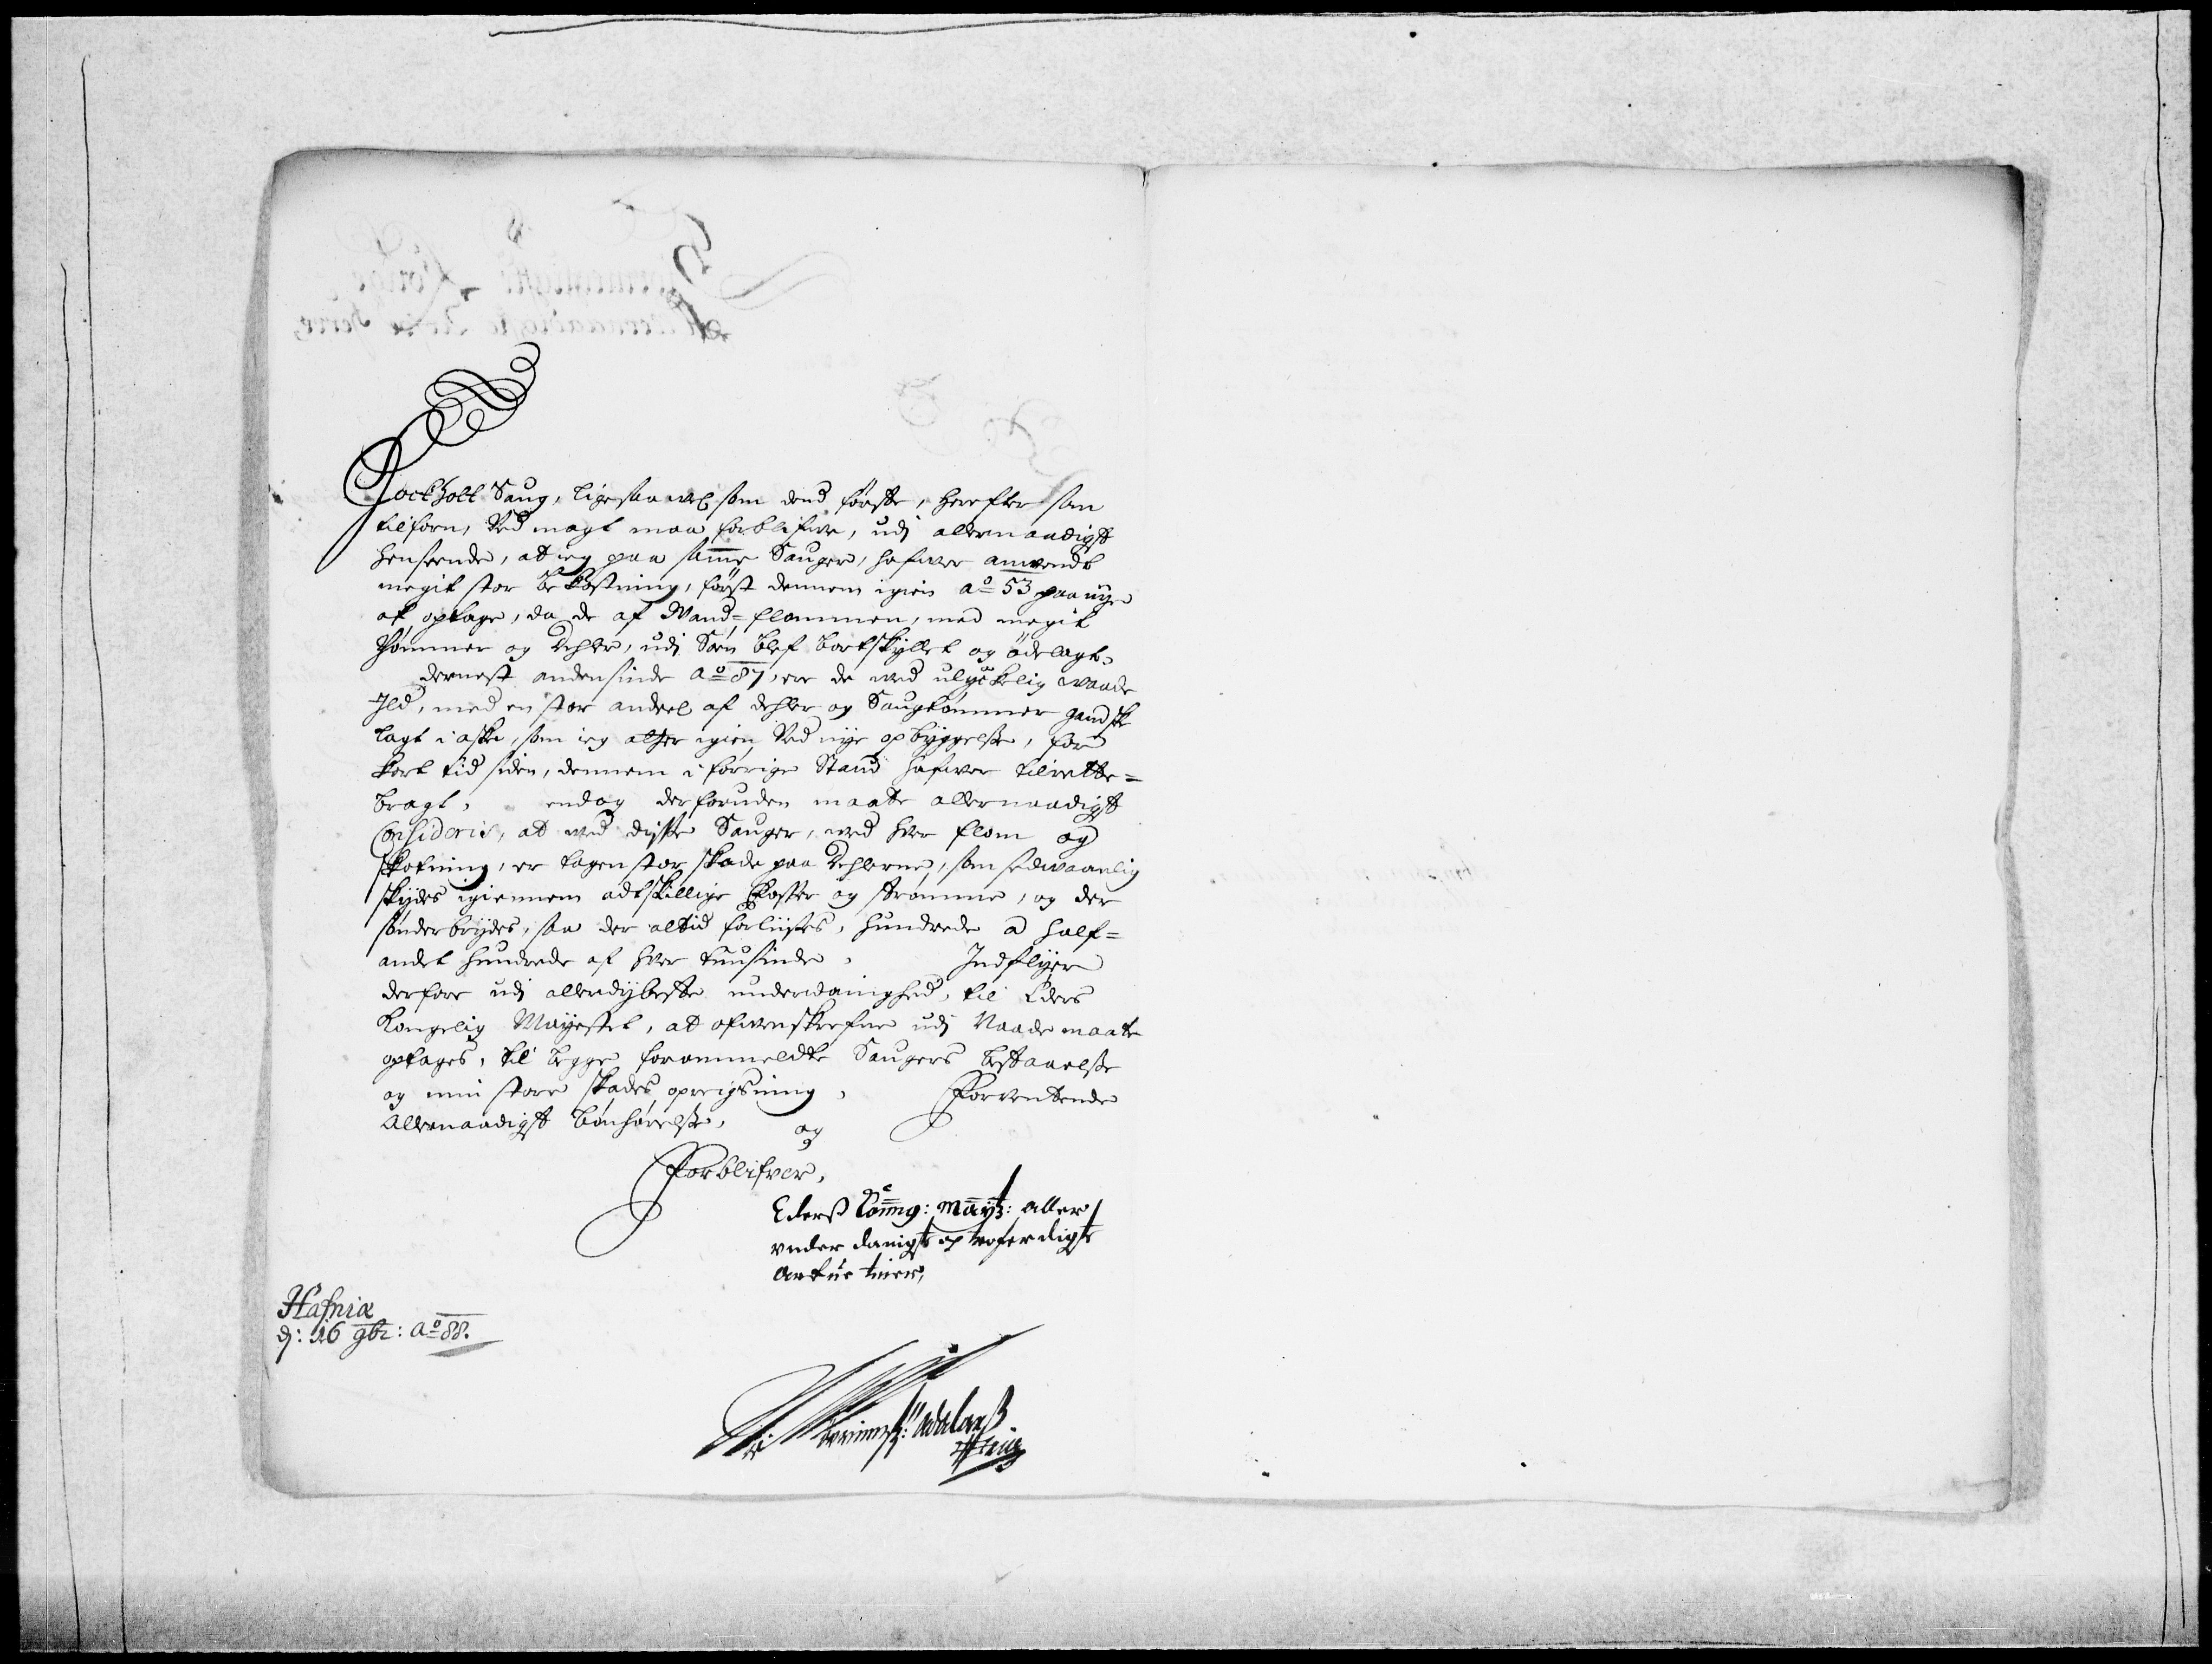 Jockholt Saug, ligesaavel som dend første, herefter som
tilforn, Ved magt maa forblifwe, udj allernaadigst
henseende, at ieg paa samme Sauger, hafwer anwendt
megit stor bekostning, først dennem igien aō 53 paa nye
at optage, da de af Wand=flommen, med megit
Tømmer og Dehler, udj Søen blef bortskyllet og ödelagt,
dernest anden sinde aō 87, ere de ved ulyckelig waade
Ild, med en stor andeel af dehler og Saugtømmer gandske
lagt i aske, som ieg atter igien Ved nye opbyggelse, for
kort tid siden, dennem i forrige Stand hafwer tilrette=
bragt, endog der foruden maatte allernaadigst
Consideris, at ved disse Sauger, ved hver flom og
skotning, er tagen stor skade paa Dehlerne, som sedwaanlig
skydes igiennem adskillige fosser og strømme, og der
sønderbrydes, saa der altid forliises, hundrede a half=
andet hundrede af hver tuusinde, Indflyer
derfore udj allerdybeste underdanighed, til Eders
Kongelig Mayestet, at ofwenskrefne udj Naade maatte
optages, til begge forommeldte Saugers bestaaelse
og min store skades opreigsning, Forventende
Allernaadigst bönhørelse, og
Forblifver,
Ederß Konng: Maytz: aller
vnder danigste
Hafniæ
dj: 16 9br: aō 88.